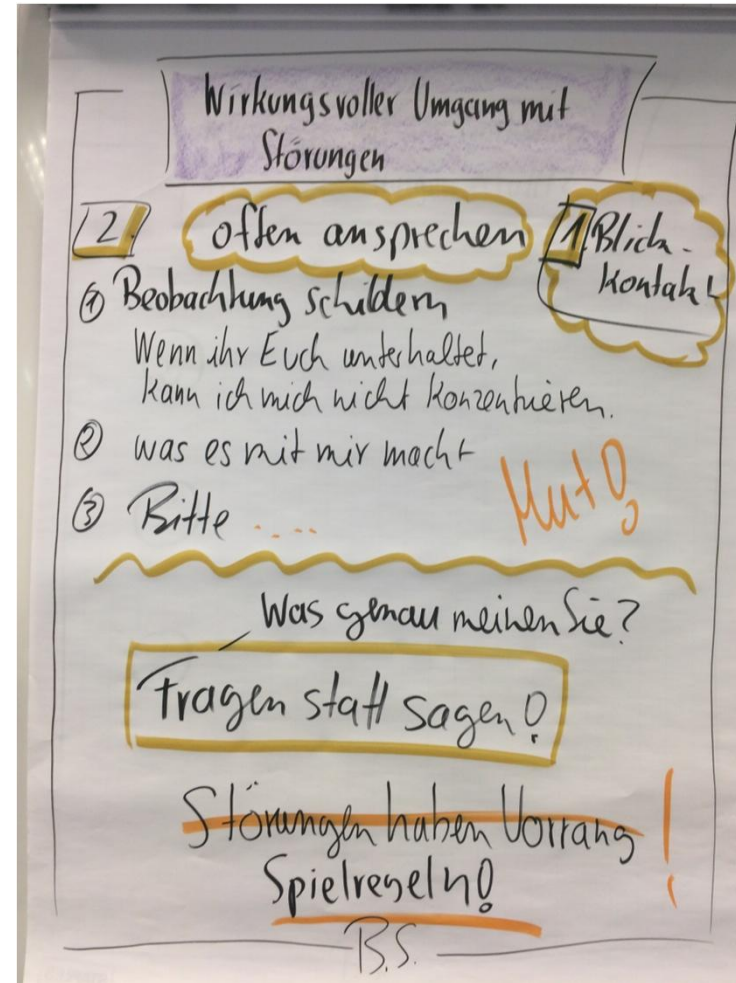 Wirkungsvoller Umgang mit
Störungen
1 Blick-
Kontakt
2 offen ansprechen
① Beobachtung schildern
Wenn ihr Euch unterhaltet,
kann ich mich nicht konzentrieren.
② was es mit mir macht
③ Bitte .....
Mut!
Was genau meinen Sie?
Fragen statt sagen!
Störungen haben Vorrang!
Spielregeln!
B.S.